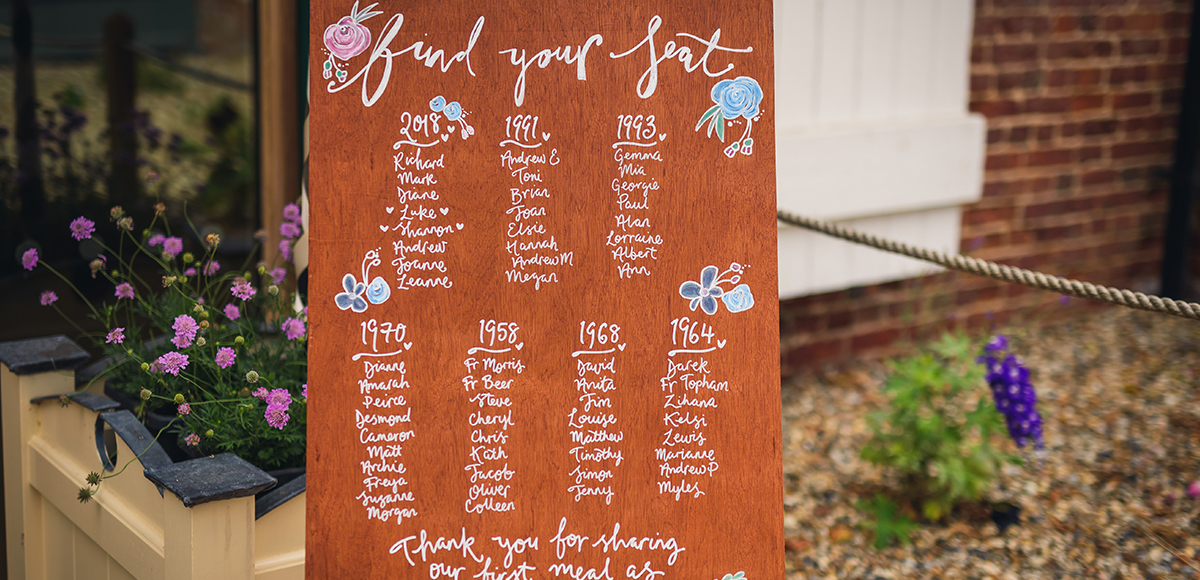 find your Seat
2018
Richard
Mark
Diane
Luke
Shannon
Andrew
Joanne
Leanne
1991
Andrew E
Toni
Brian
Joan
Elsie
Hannah
Andrew M
Megan
1993
Gemma
Mia
Georgie
Paul
Alan
Lorraine
Albert
Ann
1970
Dianne
Amarah
Peirce
Desmond
Cameron
Matt
Archie
Freya
Suzanne
Morgan
1958
Fr Morris
Fr Beer
Steve
Cheryl
Chris
Kath
Jacob
Oliver
Colleen
1968
David
Anita
Jim
Louise
Matthew
Timothy
Simon
Jenny
1964
Derek
Fr Topham
Zihana
Kelsi
Lewis
Marianne
Andrew P
Myles
Thank you for sharing
our first meal as